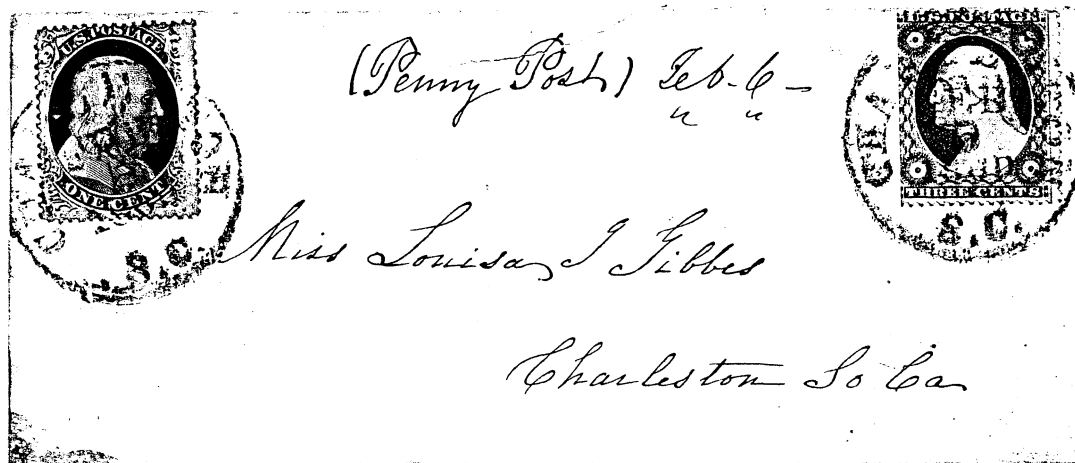 U.S. POSTAGE
ONE CENT
S.C.
(Penny Post) Feb. 6 -
U.S. POSTAGE
THREE CENTS
CHA
S.C.
Miss Louisa J Gibbes
Charleston So Ca